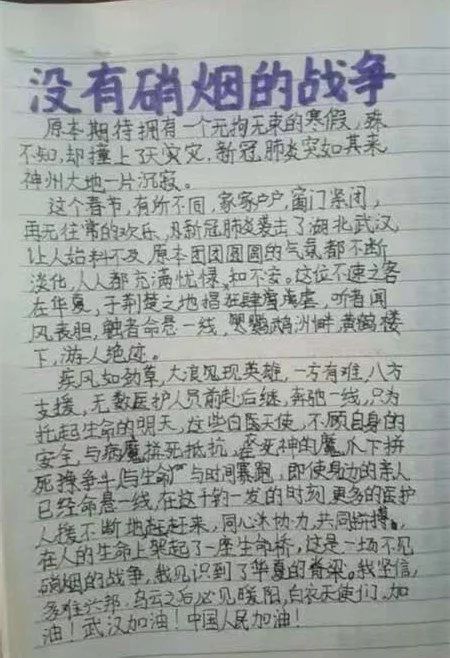 没有硝烟的战争
原本期待拥有一个无拘无束的寒假,殊
不知,却撞上了天灾,新冠肺炎突如其来
神州大地一片沉寂。
这个春节,有所不同,家家户户,窗门紧闭,
再无往常的欢乐,新冠肺炎袭击了湖北武汉,
让人始料不及,原本团团圆圆的气氛都不断
淡化,人人都充满忧虑,和不安。这位不速之客
在华夏,于荆楚之地猖狂肆虐,听者闻
风丧胆,触者命悬一线,鹦鹉洲畔,黄鹤楼
下,游人绝迹。
疾风知劲草,大浪见现英雄,一方有难,八方
支援,无数医护人员前赴后继,奔驰一线,只为
托起生命的明天,这些白医天使,不顾自身的
安全,与病魔拼死抵抗,在死神的魔爪下拼
死搏争斗,与生命与时间赛跑,即使身边的亲人
已经命悬一线,在这千钧一发的时刻,更多的医护
人援不断地赶赶来,同心米协力,共同拼搏,
在人的生命上架起了一座生命桥,这是一场不见
硝烟的战争,我见识到了华夏的脊梁。我坚信,
多难兴邦,乌云之后必见暖阳,白衣天使们,加
油!武汉加油!中国人民加油!